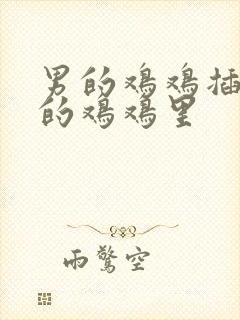 男的鸡鸡插
的鸡鸡里
雨惊空